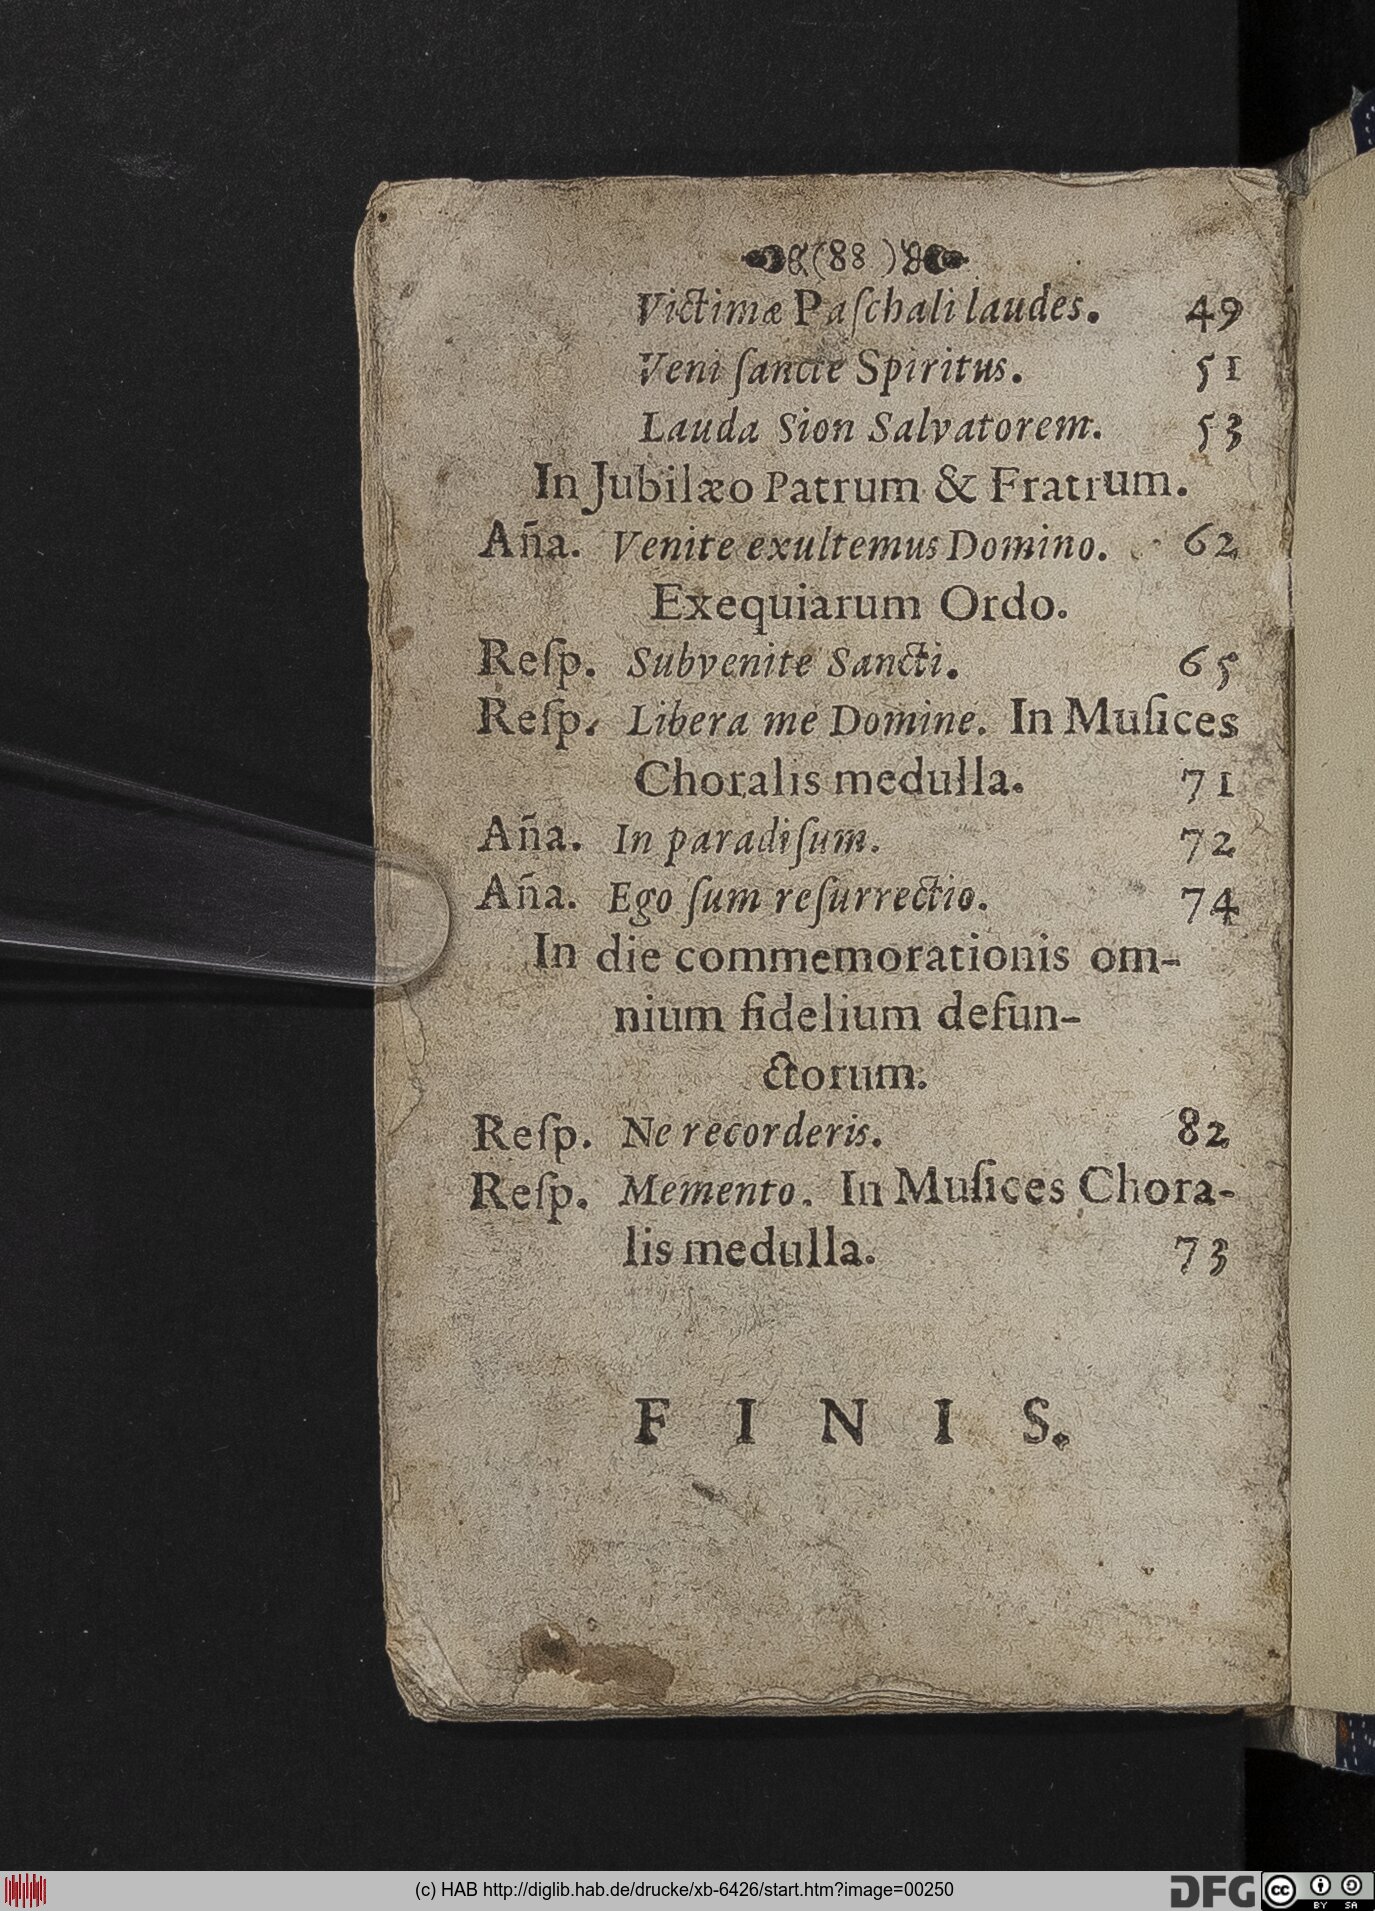 (88)
Victimæ Paſchali laudes. 49
Veni ſancte Spiritus. 51
Lauda Sion Salvatorem. 53
In Jubilæo Patrum & Fratrum.
Aña. Venite exultemus Domino. 62
Exequiarum Ordo.
Reſp. Subvenite Sancti. 65
Reſp. Libera me Domine. In Muſices
Choralis medulla. 71
Aña. In paradiſum. 72
Aña. Ego ſum reſurrectio. 74
In die commemorationis om-
nium fidelium defun-
ctorum.
Reſp. Ne recorderis. 82
Reſp. Memento. In Muſices Chora-
lis medulla. 73
F I N I S.
(c) HAB http://diglib.hab.de/drucke/xb-6426/start.htm?image=00250
DFG
cc BY SA